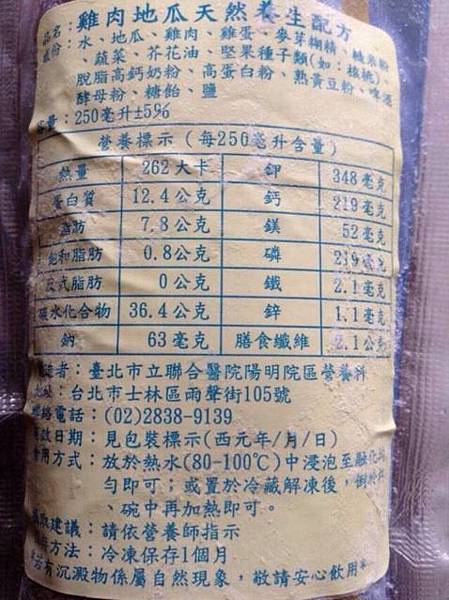 品名：雞肉地瓜天然養生配方
成份：水、地瓜、雞肉、雞蛋、麥芽糊精、糙米粉
、蔬菜、芥花油、堅果種子類(如：核桃)、
脫脂高鈣奶粉、高蛋白粉、熟黃豆粉、啤酒
酵母粉、糖飴、鹽
容量：250毫升±5%
營養標示（每250毫升含量）
熱量 262大卡 鉀 348毫克
蛋白質 12.4公克 鈣 219毫克
脂肪 7.8公克 鎂 52毫克
飽和脂肪 0.8公克 磷 219毫克
反式脂肪 0公克 鐵 2.1毫克
碳水化合物 36.4公克 鋅 1.1毫克
鈉 63毫克 膳食纖維 2.1公克
製造者：臺北市立聯合醫院陽明院區營養科
地址：台北市士林區雨聲街105號
聯絡電話：(02)2838-9139
有效日期：見包裝標示(西元年/月/日)
食用方式：放於熱水(80-100℃)中浸泡至融化均
勻即可；或置於冷藏解凍後，倒於杯
、碗中再加熱即可。
攝取建議：請依營養師指示
保存方法：冷凍保存1個月
若有沉澱物係屬自然現象，敬請安心飲用*